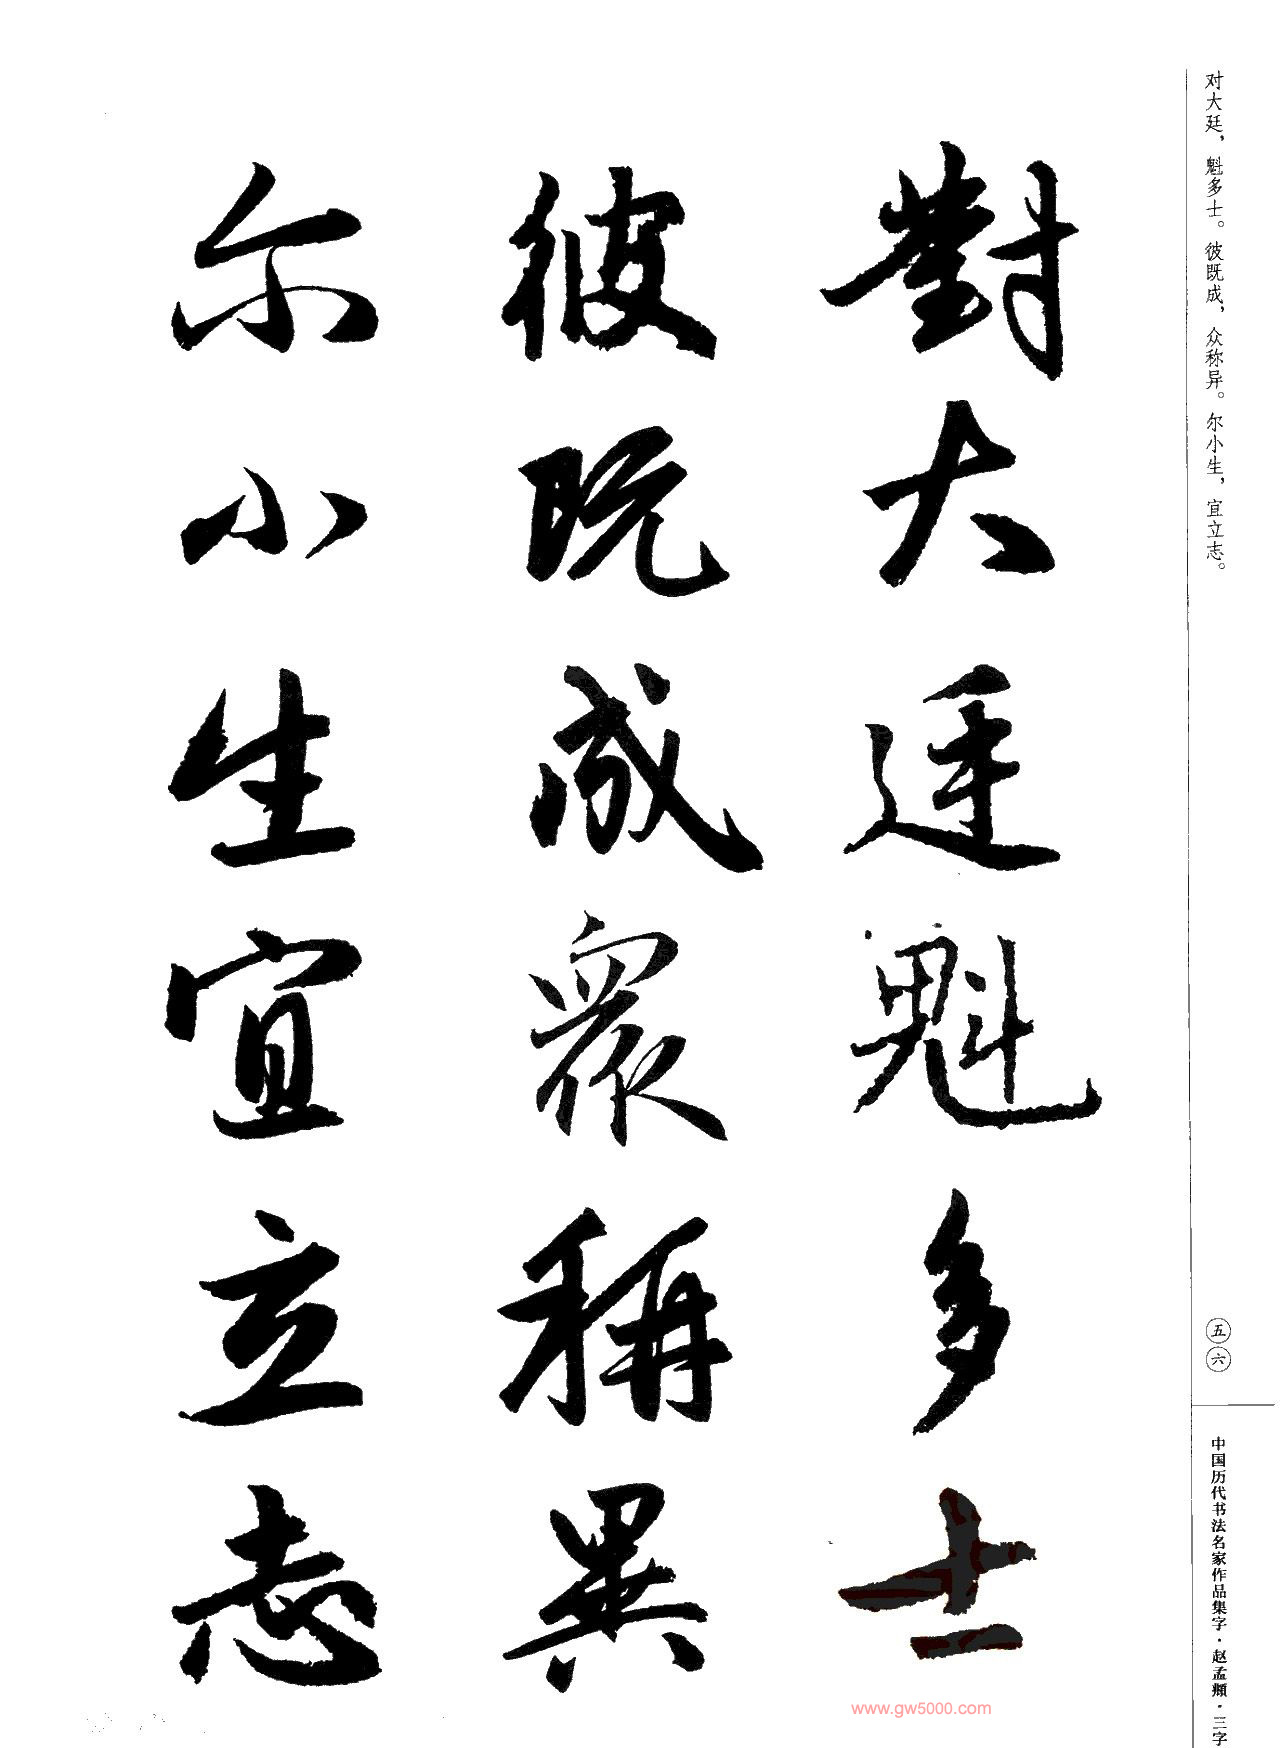 对大廷，魁多士。彼既成，众称异。尔小生，宜立志。
五六
中国历代书法名家作品集字·赵孟頫·三字
對大廷魁多士
彼既成眾稱異
尔小生宜立志
www.gw5000.com